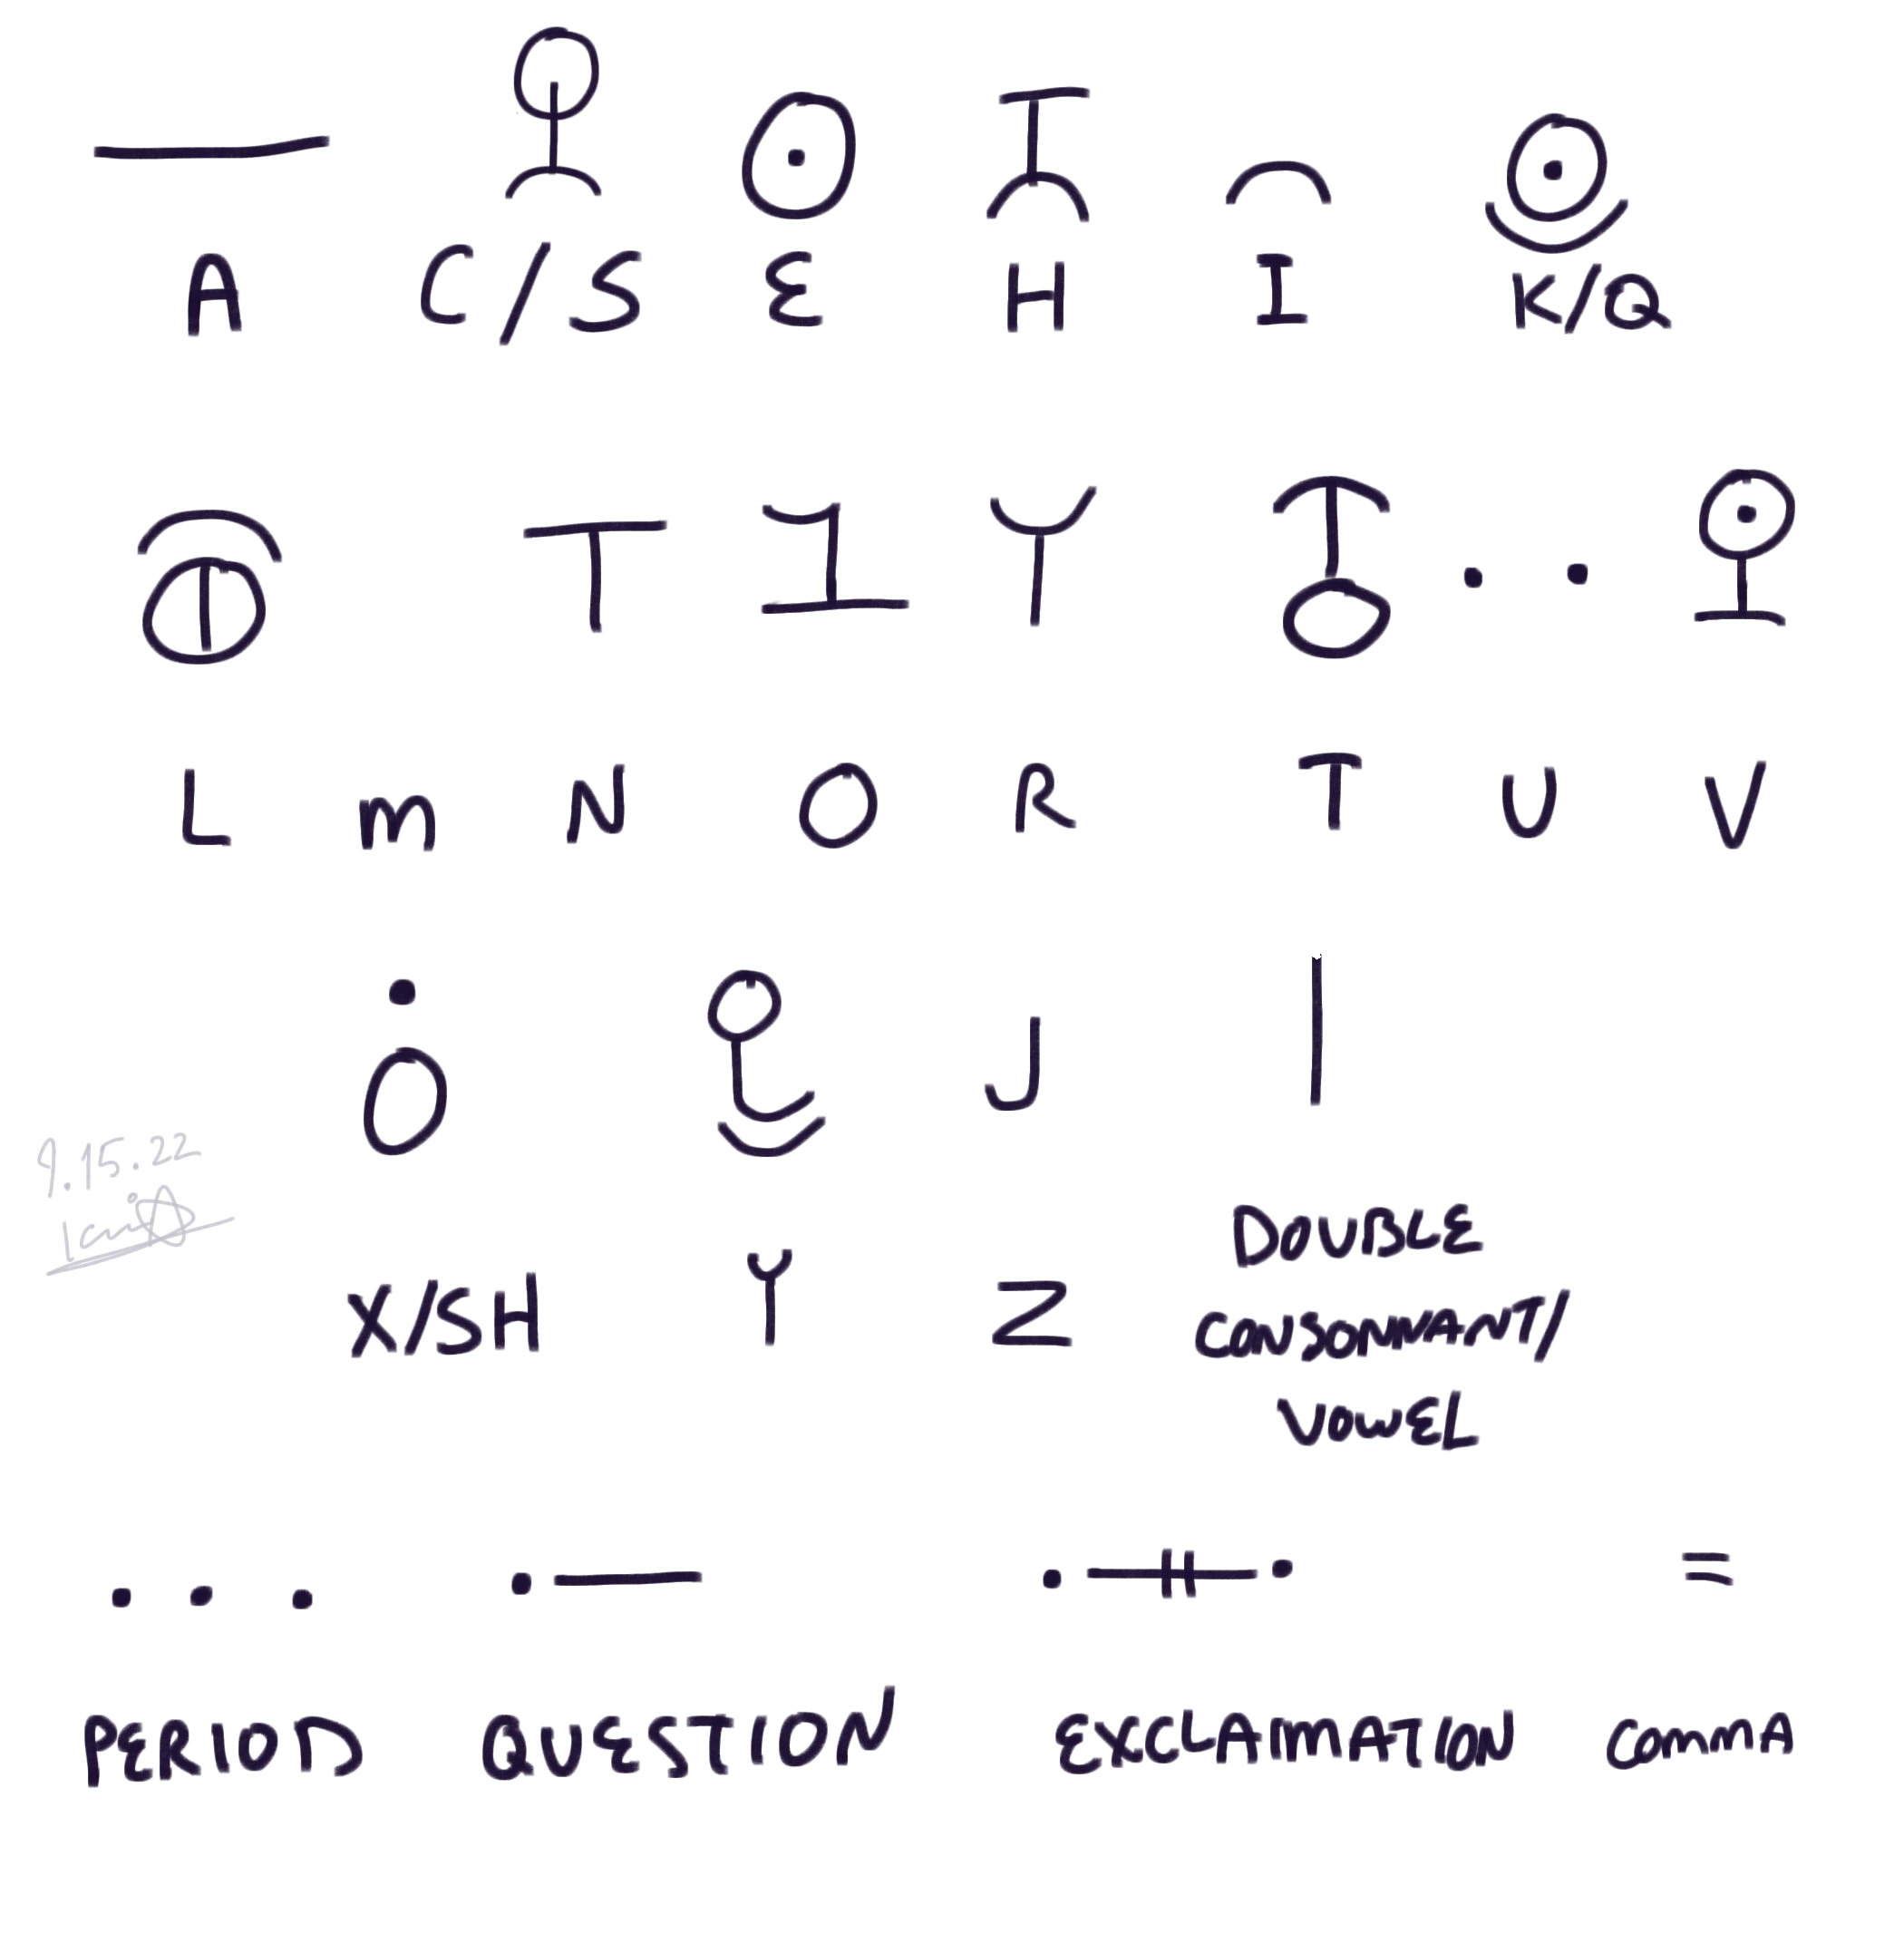 A C/S E H I K/Q
L m N O R T U V
9.15.22
X/SH Y Z DOUBLE
CONSONNANT/
VOWEL
PERIOD QUESTION EXCLAIMATION COMMA